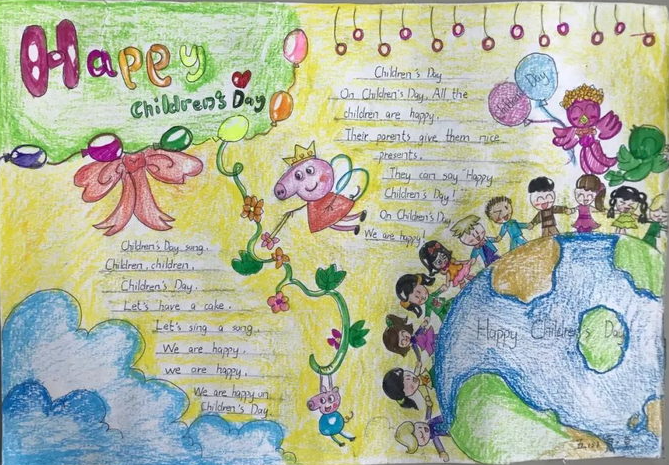 Happy
Children's Day
Children's Day
On Children's Day. All the
children are happy.
Their parents give them nice
presents.
They can say "Happy
Children's Day!"
On Children's Day
We are happy!
Day
Children's Day song.
Children, children,
Children's Day.
Let's have a cake.
Let's sing a song.
We are happy.
we are happy.
We are happy on
Children's Day.
Happy Children's Day